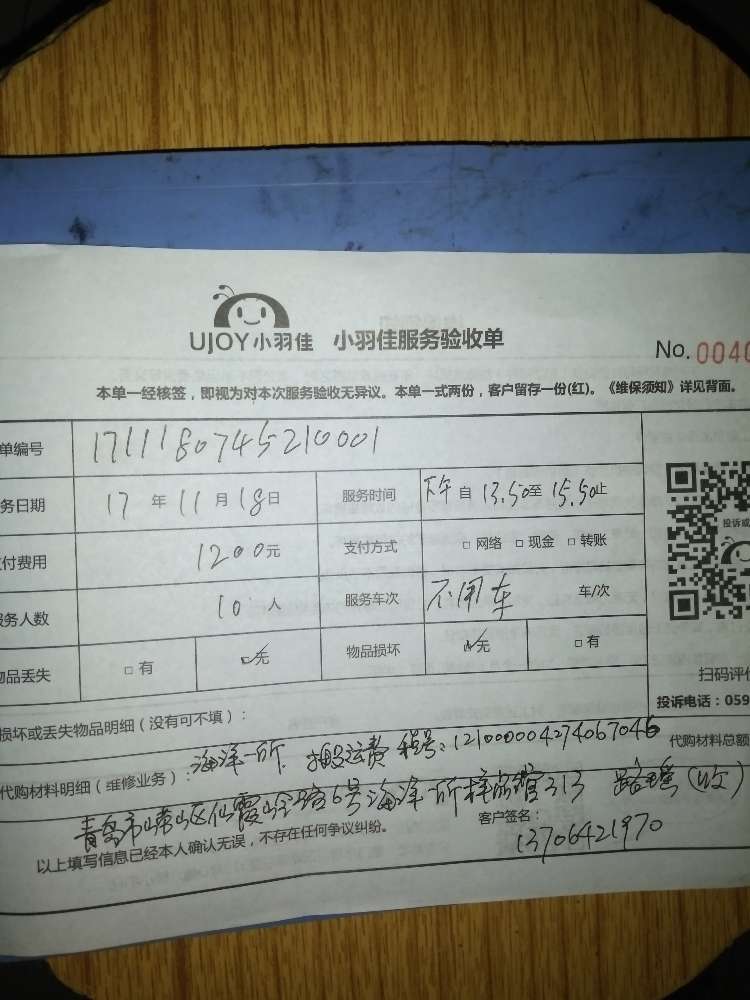 UJOY小羽佳 小羽佳服务验收单
No. 0040
本单一经核签，即视为对本次服务验收无异议。本单一式两份，客户留存一份(红)。《维保须知》详见背面。
单编号 1711180745210001
务日期 17 年 11 月 18 日 服务时间 下午 自 13.50 至 15.50 止
付费用 1200元 支付方式 □ 网络 □ 现金 □ 转账
投诉或
务人数 10 人 服务车次 不用车 车/次
品丢失 □ 有 ☑ 无 物品损坏 ☑ 无 □ 有
扫码评价
投诉电话：059
损坏或丢失物品明细（没有可不填）：
代购材料明细（维修业务）： 海洋一所 搬运费 税号：12100000427406704 代购材料总额
青岛市崂山区仙霞岭路6号海洋一所样品馆313 路 (收)
以上填写信息已经本人确认无误，不存在任何争议纠纷。 客户签名：
13706421970